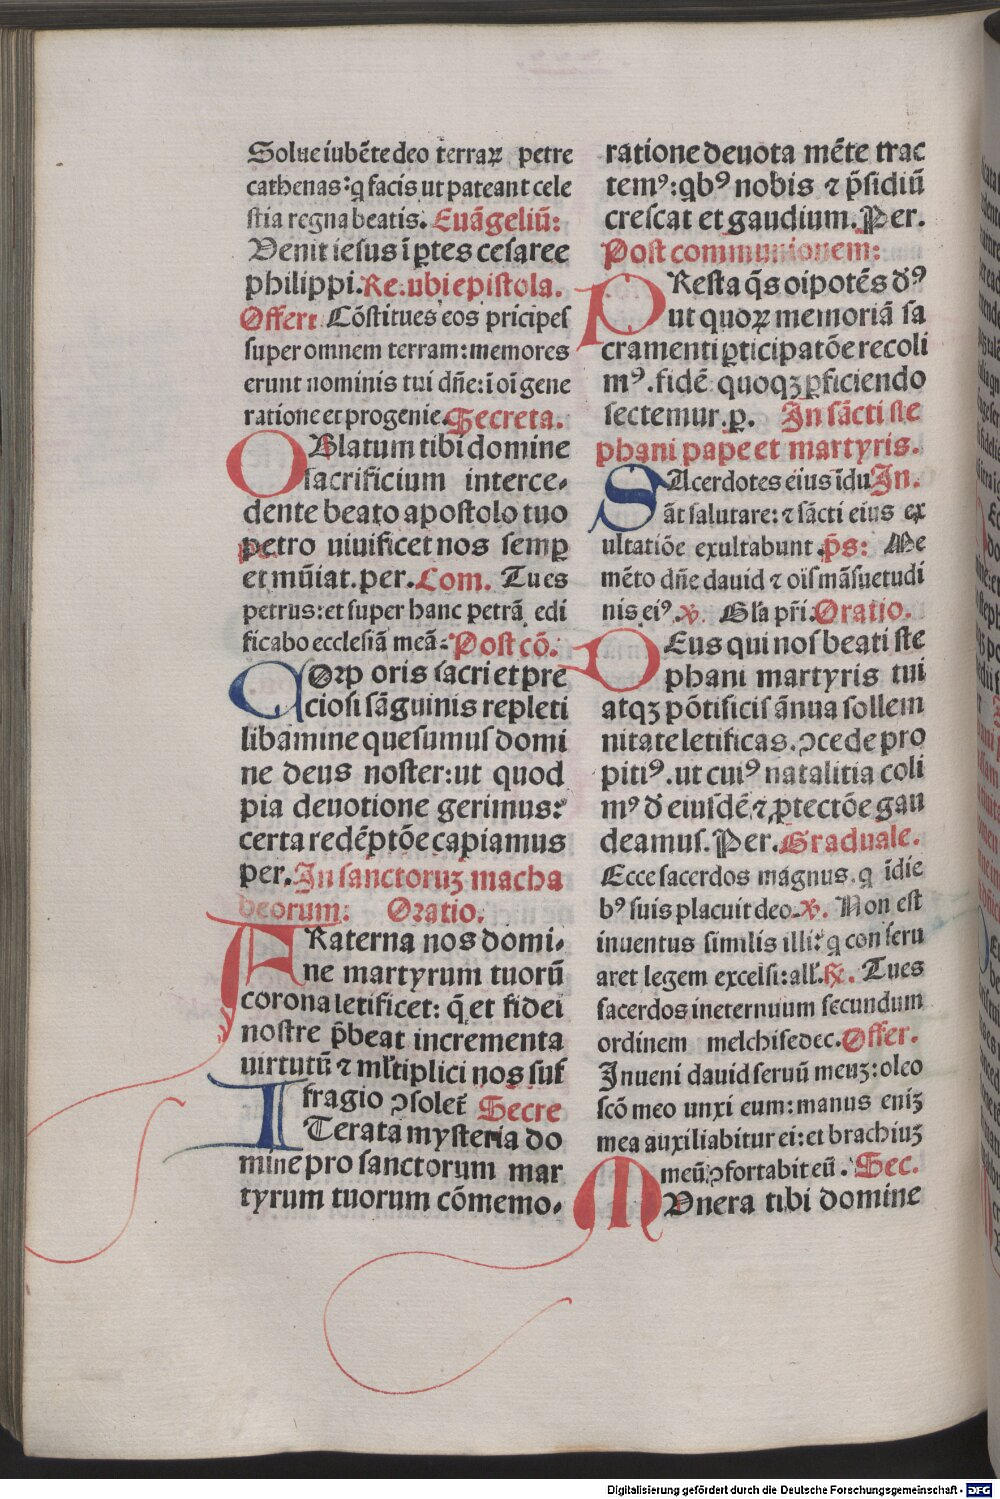 Solue iubẽte deo terraꝝ petre
cathenas: q facis ut pateant cele
stia regna beatis. Euãgeliũ:
Venit iesus ĩ ꝑtes cesaree
philippi. Re. ubi epistola.
Offert Cõstitues eos pricipes
super omnem terram: memores
erunt nominis tui dñe: ĩ oĩ gene
ratione et progenie. Secreta.
OBlatum tibi domine
sacrificium interce-
dente beato apostolo tuo
petro uiuificet nos semꝑ
et mũiat. per. Com. Tu es
petrus: et super hanc petrã edi
ficabo ecclesiã meã: Post cõ.
COrp oris sacri et pre
ciosi sãguinis repleti
libamine quesumus domi
ne deus noster: ut quod
pia deuotione gerimus:
certa redẽptõe capiamus
per. In sanctoruꝫ macha
beorum: Oratio.
FRaterna nos domi-
ne martyrum tuorũ
corona letificet: q̃ et fidei
nostre p̃beat incrementa
uirtutũ ⁊ mĺtiplici nos suf
fragio ꝯsolet̃ Secre
ITerata mysteria do
mine pro sanctorum mar
tyrum tuorum cõmemo-
ratione deuota mẽte trac
temꝰ: qbꝰ nobis ⁊ p̃sidiũ
crescat et gaudium. Per.
Post communionem:
PResta q̃s oipotẽs dꝰ
ut quoꝝ memoriã sa
cramenti ꝑticipatõe recoli
mꝰ. fidẽ quoqꝫ ꝓficiendo
sectemur. ꝑ. In sãcti ste
phani pape et martyris.
SAcerdotes eius ĩdu In.
ãt salutare: ⁊ sãcti eius ex
ultatiõe exultabunt. p̃s: Me
mẽto dñe dauid ⁊ oĩs mãsuetudi
nis eiꝰ. ꝟ. Gĺa pr̃i. Oratio.
DEus qui nos beati ste
phani martyris tui
atqꝫ põtificis ãnua sollem
nitate letificas. ꝯcede pro
pitiꝰ. ut cuiꝰ natalitia coli
mꝰ d̃ eiusdẽ ⁊ ꝓtectõe gau
deamus. Per. Graduale.
Ecce sacerdos magnus. q ĩdie
bꝰ suis placuit deo. ꝟ. Non est
inuentus similis illi: q conseru
aret legem excelsi: alĺ. ℟. Tu es
sacerdos ineternuum secundum
ordinem melchisedec. Offer.
Inueni dauid seruũ meuꝫ: oleo
scõ meo unxi eum: manus eniꝫ
mea auxiliabitur ei: et brachiuꝫ
meũ ꝯfortabit eũ. Sec.
MUnera tibi domine
Digitalisierung gefördert durch die Deutsche Forschungsgemeinschaft - DFG